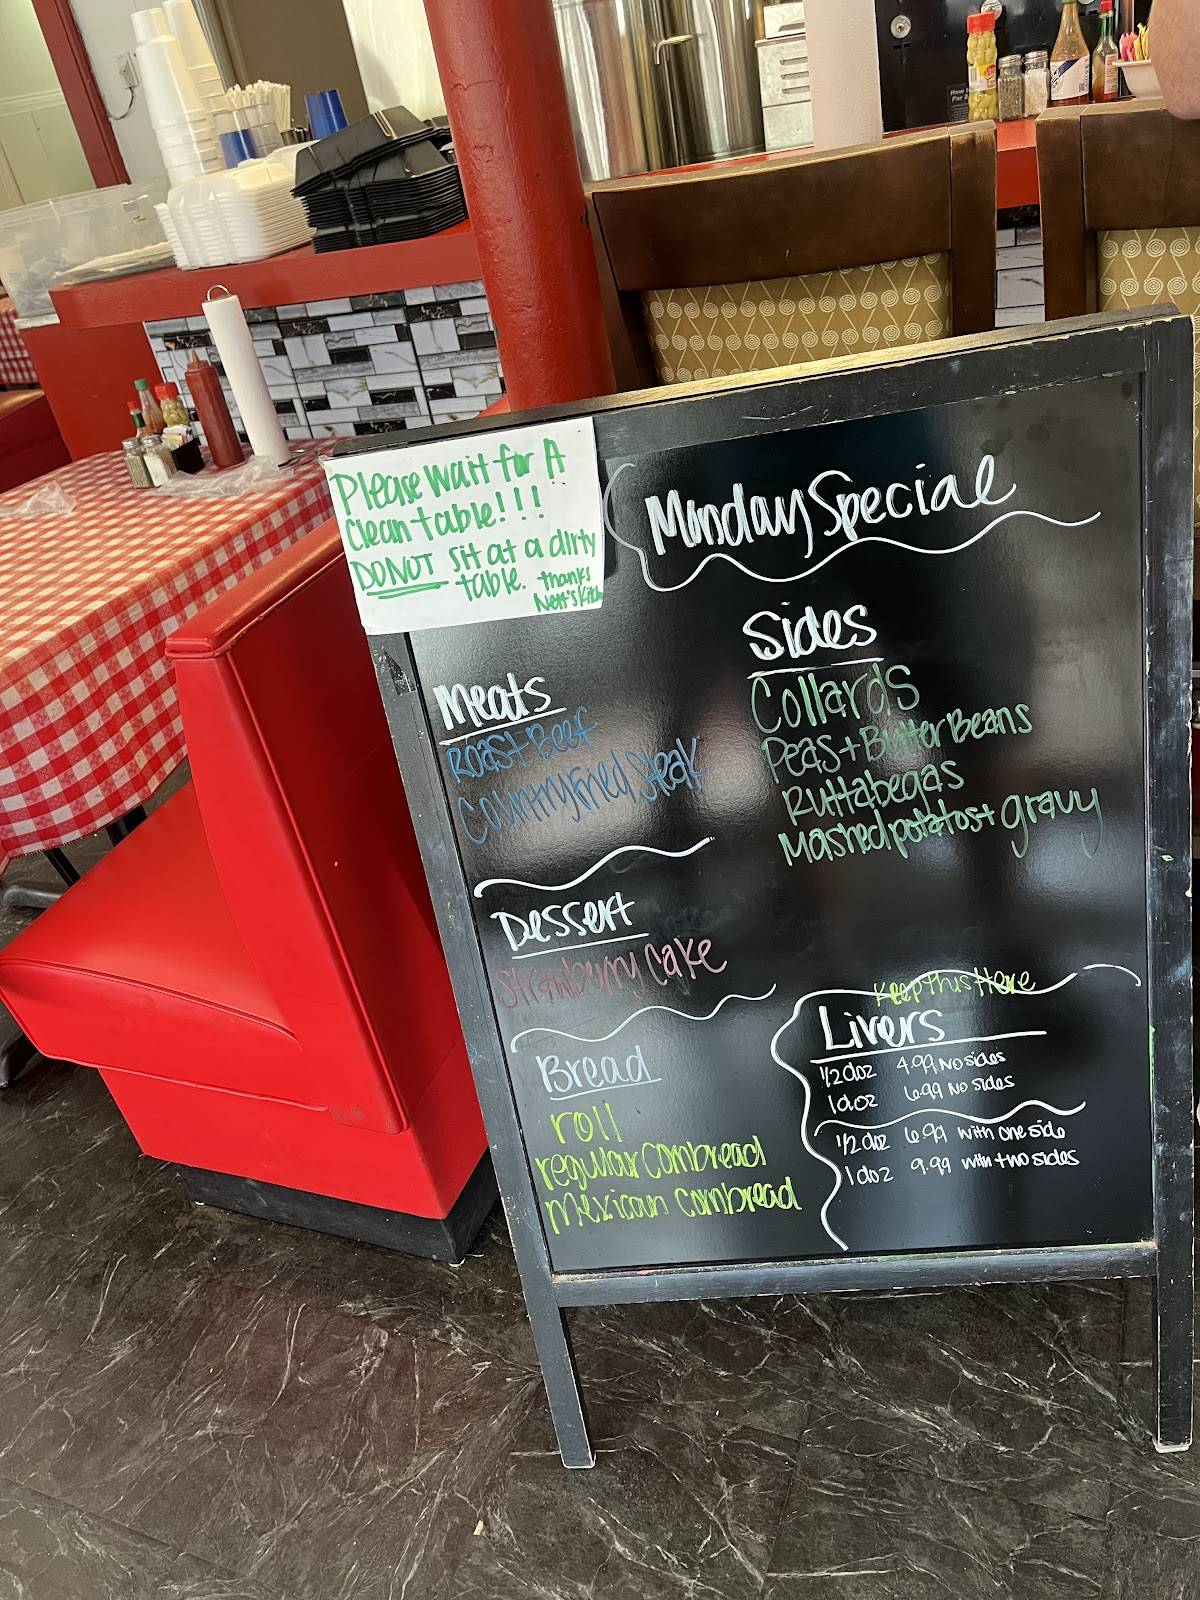 Please wait for A
Clean table!!!
DO NOT sit at a dirty
table. thanks
Nett's Kitch
Monday Special
Meats
Roast Beef
Country fried Steak
Sides
Collards
Peas + Butter Beans
Ruttabegas
Mashed potatos + gravy
Dessert
Strawberry Cake
Bread
roll
regular Cornbread
Mexican Cornbread
Keep This Here
Livers
1/2 doz 4.99 No sides
1 doz 6.99 No sides
1/2 doz 6.99 with one side
1 doz 9.99 with two sides